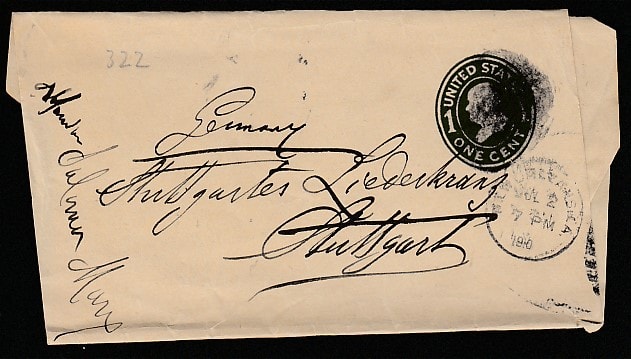 322
UNITED STA
1 ONE CENT
Germany
Stuttgarter Liederkranz
Stuttgart
JUL 2
7 PM
190